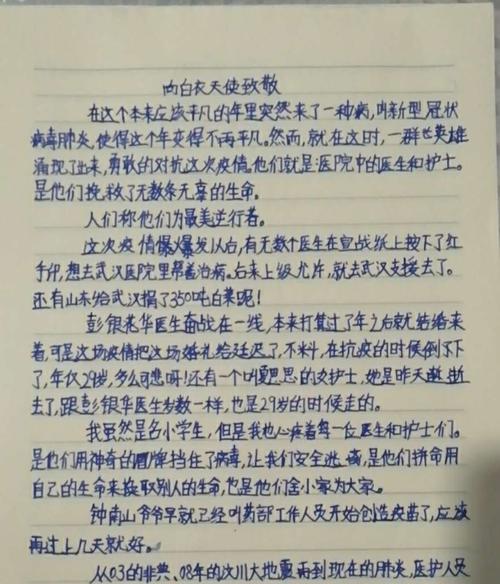 向白衣天使致敬
在这个本来应该平凡的年里突然来了一种病,叫新型冠状
病毒肺炎,使得这个年变得不再平凡。然而,就在这时,一群英雄
涌现了出来,勇敢的对抗这次疫情。他们就是:医院中的医生和护士。
是他们挽救了无数条无辜的生命。
人们称他们为最美逆行者。
这次疫情爆发以后,有无数个医生在宣战纸上按下了红
手印,想去武汉医院里帮着治病。后来上级允许,就去武汉支援去了。
还有山东给武汉捐了350吨白菜呢!
彭银华医生奋战在一线,本来打算过了年之后就结婚来
着,可是这场疫情把这场婚礼给延迟了,不料,在抗疫的时候倒下
了,年仅29岁,多么可悲呀!还有一个叫夏思思的女护士,她是昨天逝
去了,跟彭银华医生岁数一样,也是29岁的时候走的。
我虽然是名小学生,但是我也心疼着每一位医生和护士们。
是他们用神奇的盾牌挡住了病毒,让我们安全逃离,是他们拼命用
自己的生命来换取别人的生命,也是他们舍小家为大家。
钟南山爷爷早就已经叫药部工作人员开始创造疫苗了,应该
再过上几天就好。
从03的非典、08年的汶川大地震再到现在的肺炎,医护人员